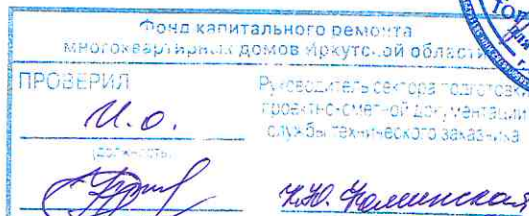 Фонд капитального ремонта
многоквартирных домов Иркутской области
ПРОВЕРИЛ
Руководитель сектора подготовки
проектно-сметной документации
службы технического заказчика
И.о.
(должность)
ТОР